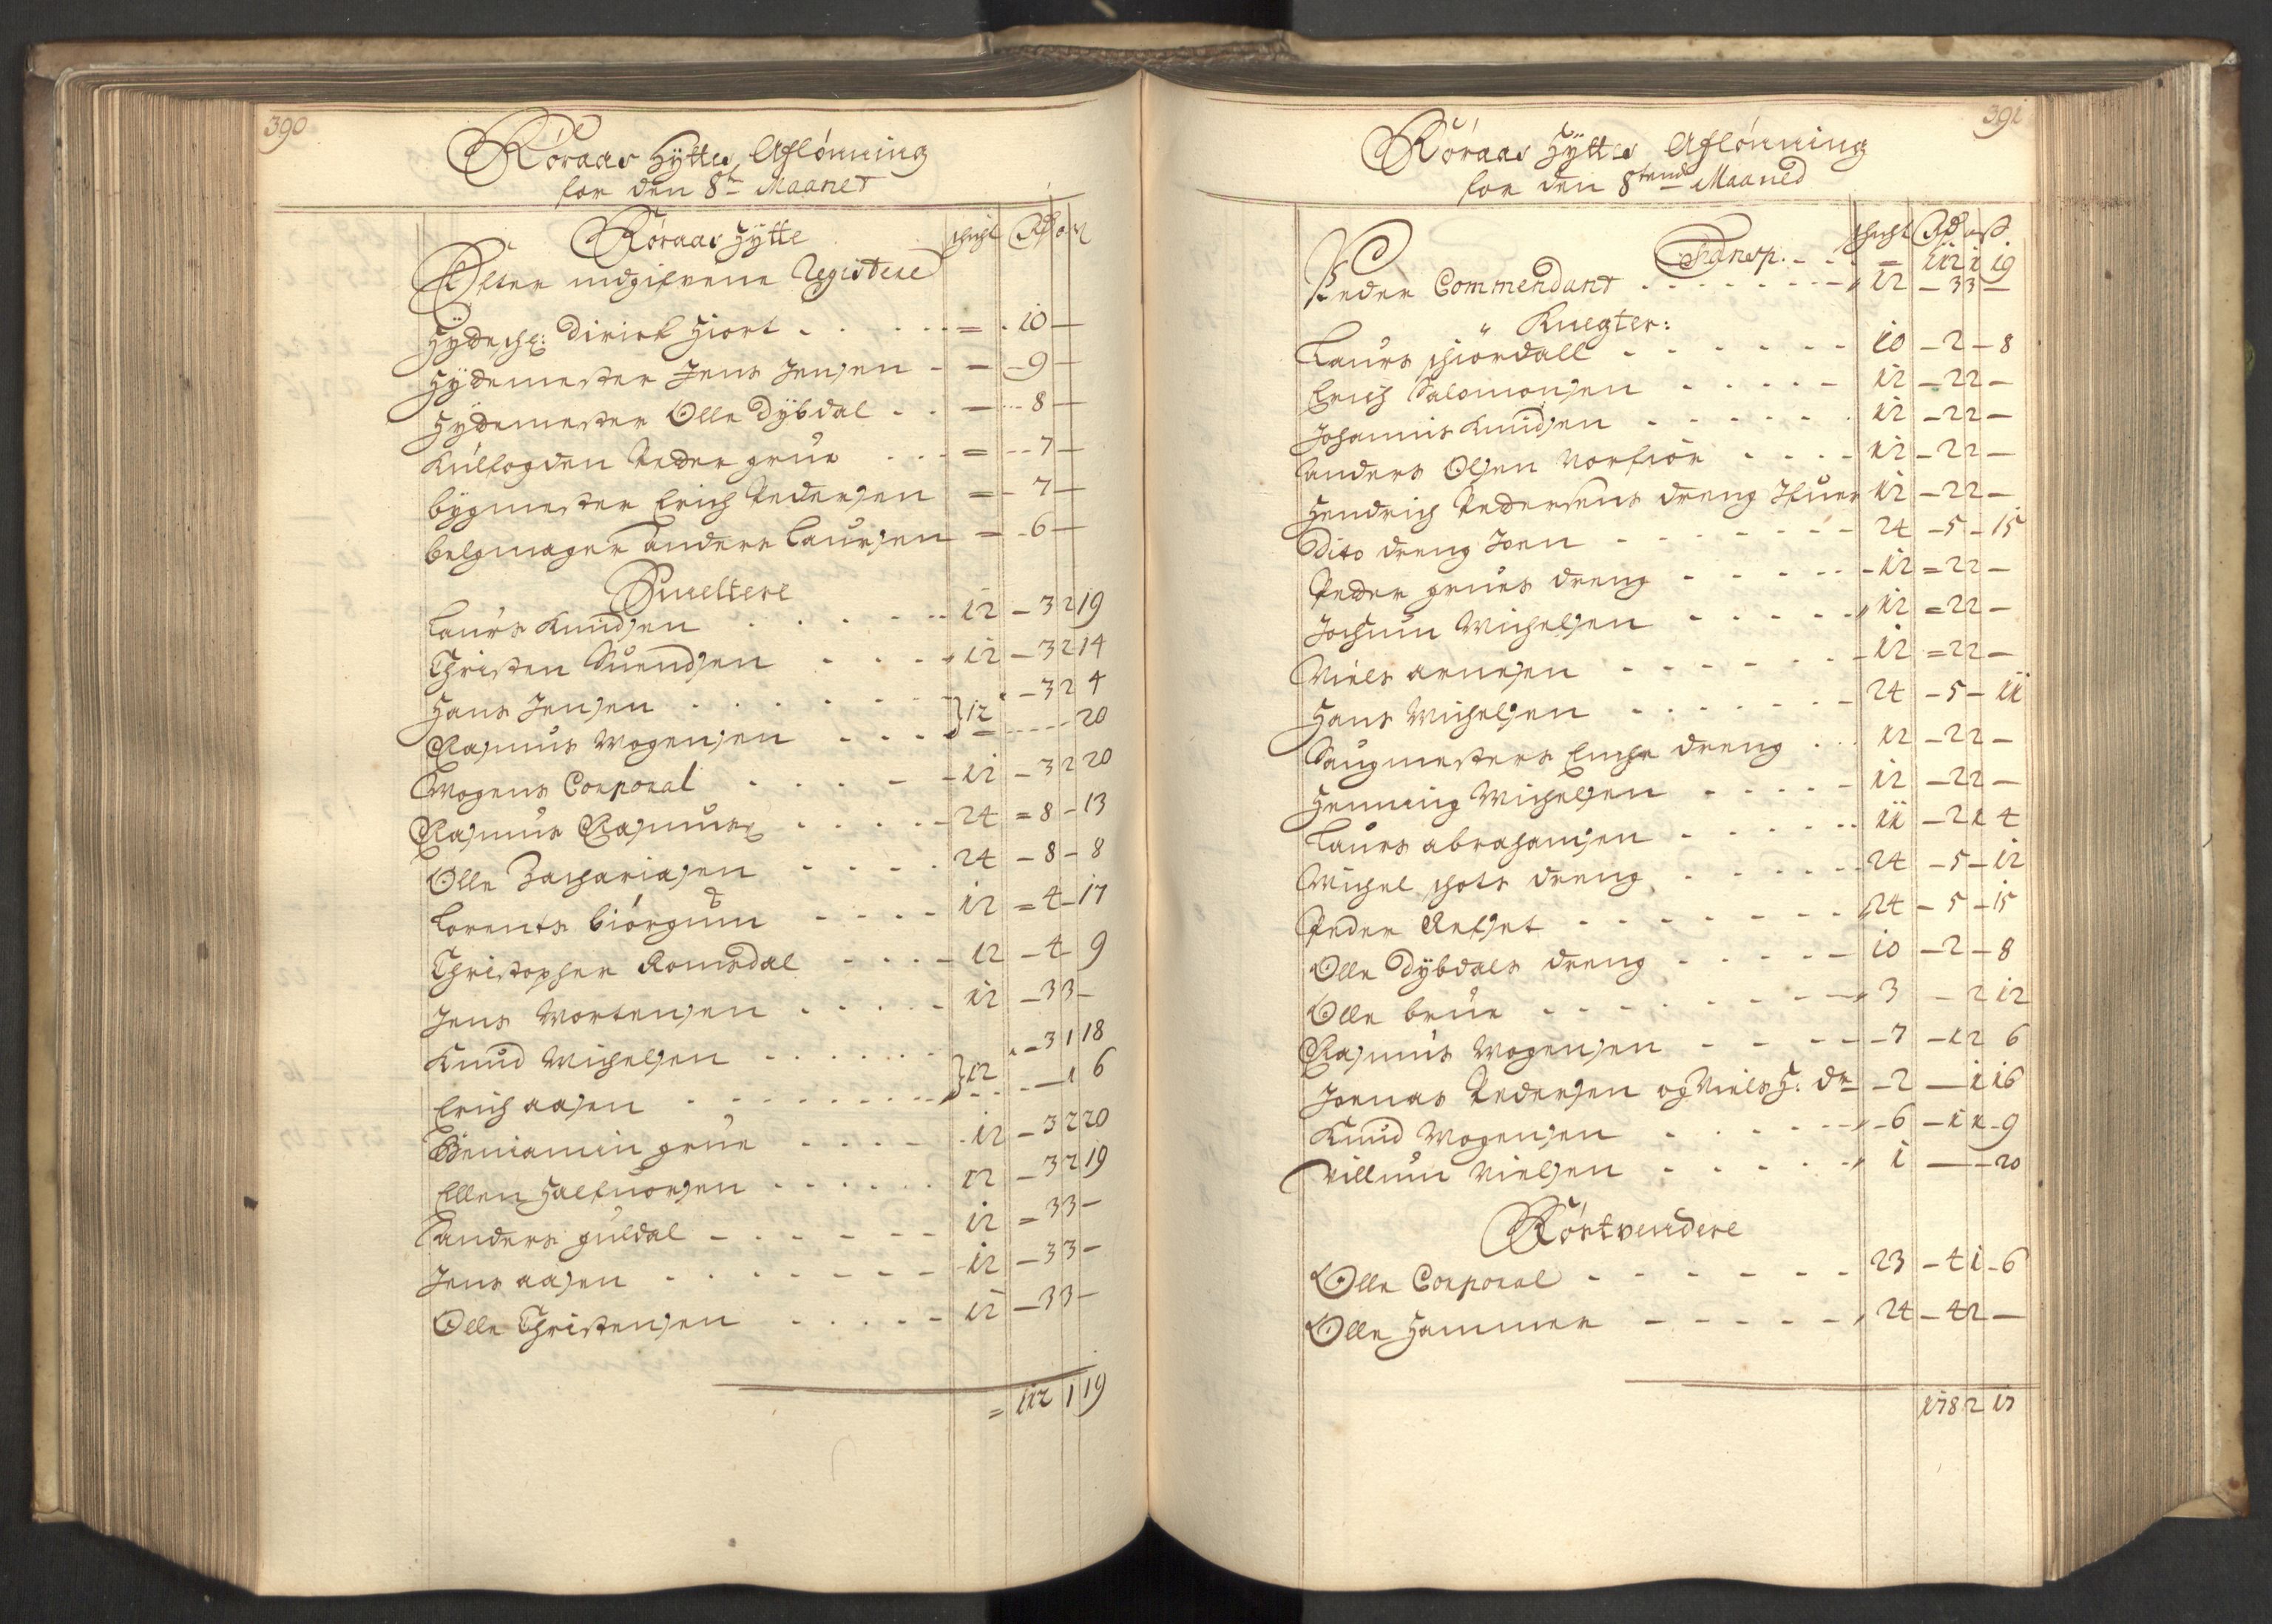 390
Röraas Hytte Aflönning
for den 8de Maanet
Röraas Hytte schicht Rdr o ß
Efter indgifvene Registere
Hydeschr: Dirich Hiort = 10 —
Hydemester Jens Jensen — 9 —
Hydemester Olle Dybdal — 8 —
Kulfogden Peder grue = 7 —
bygmester Erich Pedersen = 7 —
belgmager Anders Laursen = 6 —
Smeltere
Laurs Knudsen 12 — 3 2 19
Christen Suendsen 12 — 3 2 14
Hans Jensen — 3 2 4
Rasmus Mogensen } 12 — 20
Mogens Corporal 12 — 3 2 20
Rasmus Rasmus: 24 = 8 — 13
Olle Zachariasen 24 — 8 — 8
Lorents biörgum 12 = 4 — 17
Christopher Romsdal 12 — 4 9
Jens Mortensen 12 — 3 3 —
Knud Michelsen — 3 1 18
Erich aasen } 12 — 1 6
Beniamin grue 12 — 3 2 20
Ellen Halfuorsen 12 — 3 2 19
anders guldal 12 = 3 3 —
Jens aasen 12 — 3 3 —
Olle Christensen 12 — 3 3 —
= 112 1 19
391
Röraas Hyttes Aflönning
for den 8tende Maaned
schicht Rdr o ß
Transp. — 112 1 19
Peder Commendant 12 — 3 3 —
Knegter:
Laurs schiordall 10 — 2 — 8
Erich Salomonsen 12 — 2 2 —
Johannis Knudsen 12 — 2 2 —
anders Olsen 12 — 2 2 —
Hendrich Pedersens dreng Ifuer 12 — 2 2 —
Dito dreng Joen 24 — 5 — 15
Peder grues dreng 12 = 2 2 —
Jochum Michelsen 12 = 2 2 —
Niels arnesen 12 = 2 2 —
Hans Michelsen 24 — 5 — 11
Saugmesters dreng 12 — 2 2 —
Henning Michelsen 12 — 2 2 —
Laurs abrahamsen 11 — 2 1 4
Michel schots dreng 24 — 5 — 12
Peder 24 — 5 — 15
Olle Dybdals dreng 10 — 2 — 8
Olle brue 3 — 2 12
Rasmus Mogensen 7 — 1 2 6
Joenas Pedersen og Niels H: dr 2 — 1 16
Knud Mogensen 6 — 1 1 9
Villum Nielsen 1 — 20
Röstvendere
Olle Corporal 23 — 4 1 6
Olle Hammer 24 — 4 2 —
178 2 17